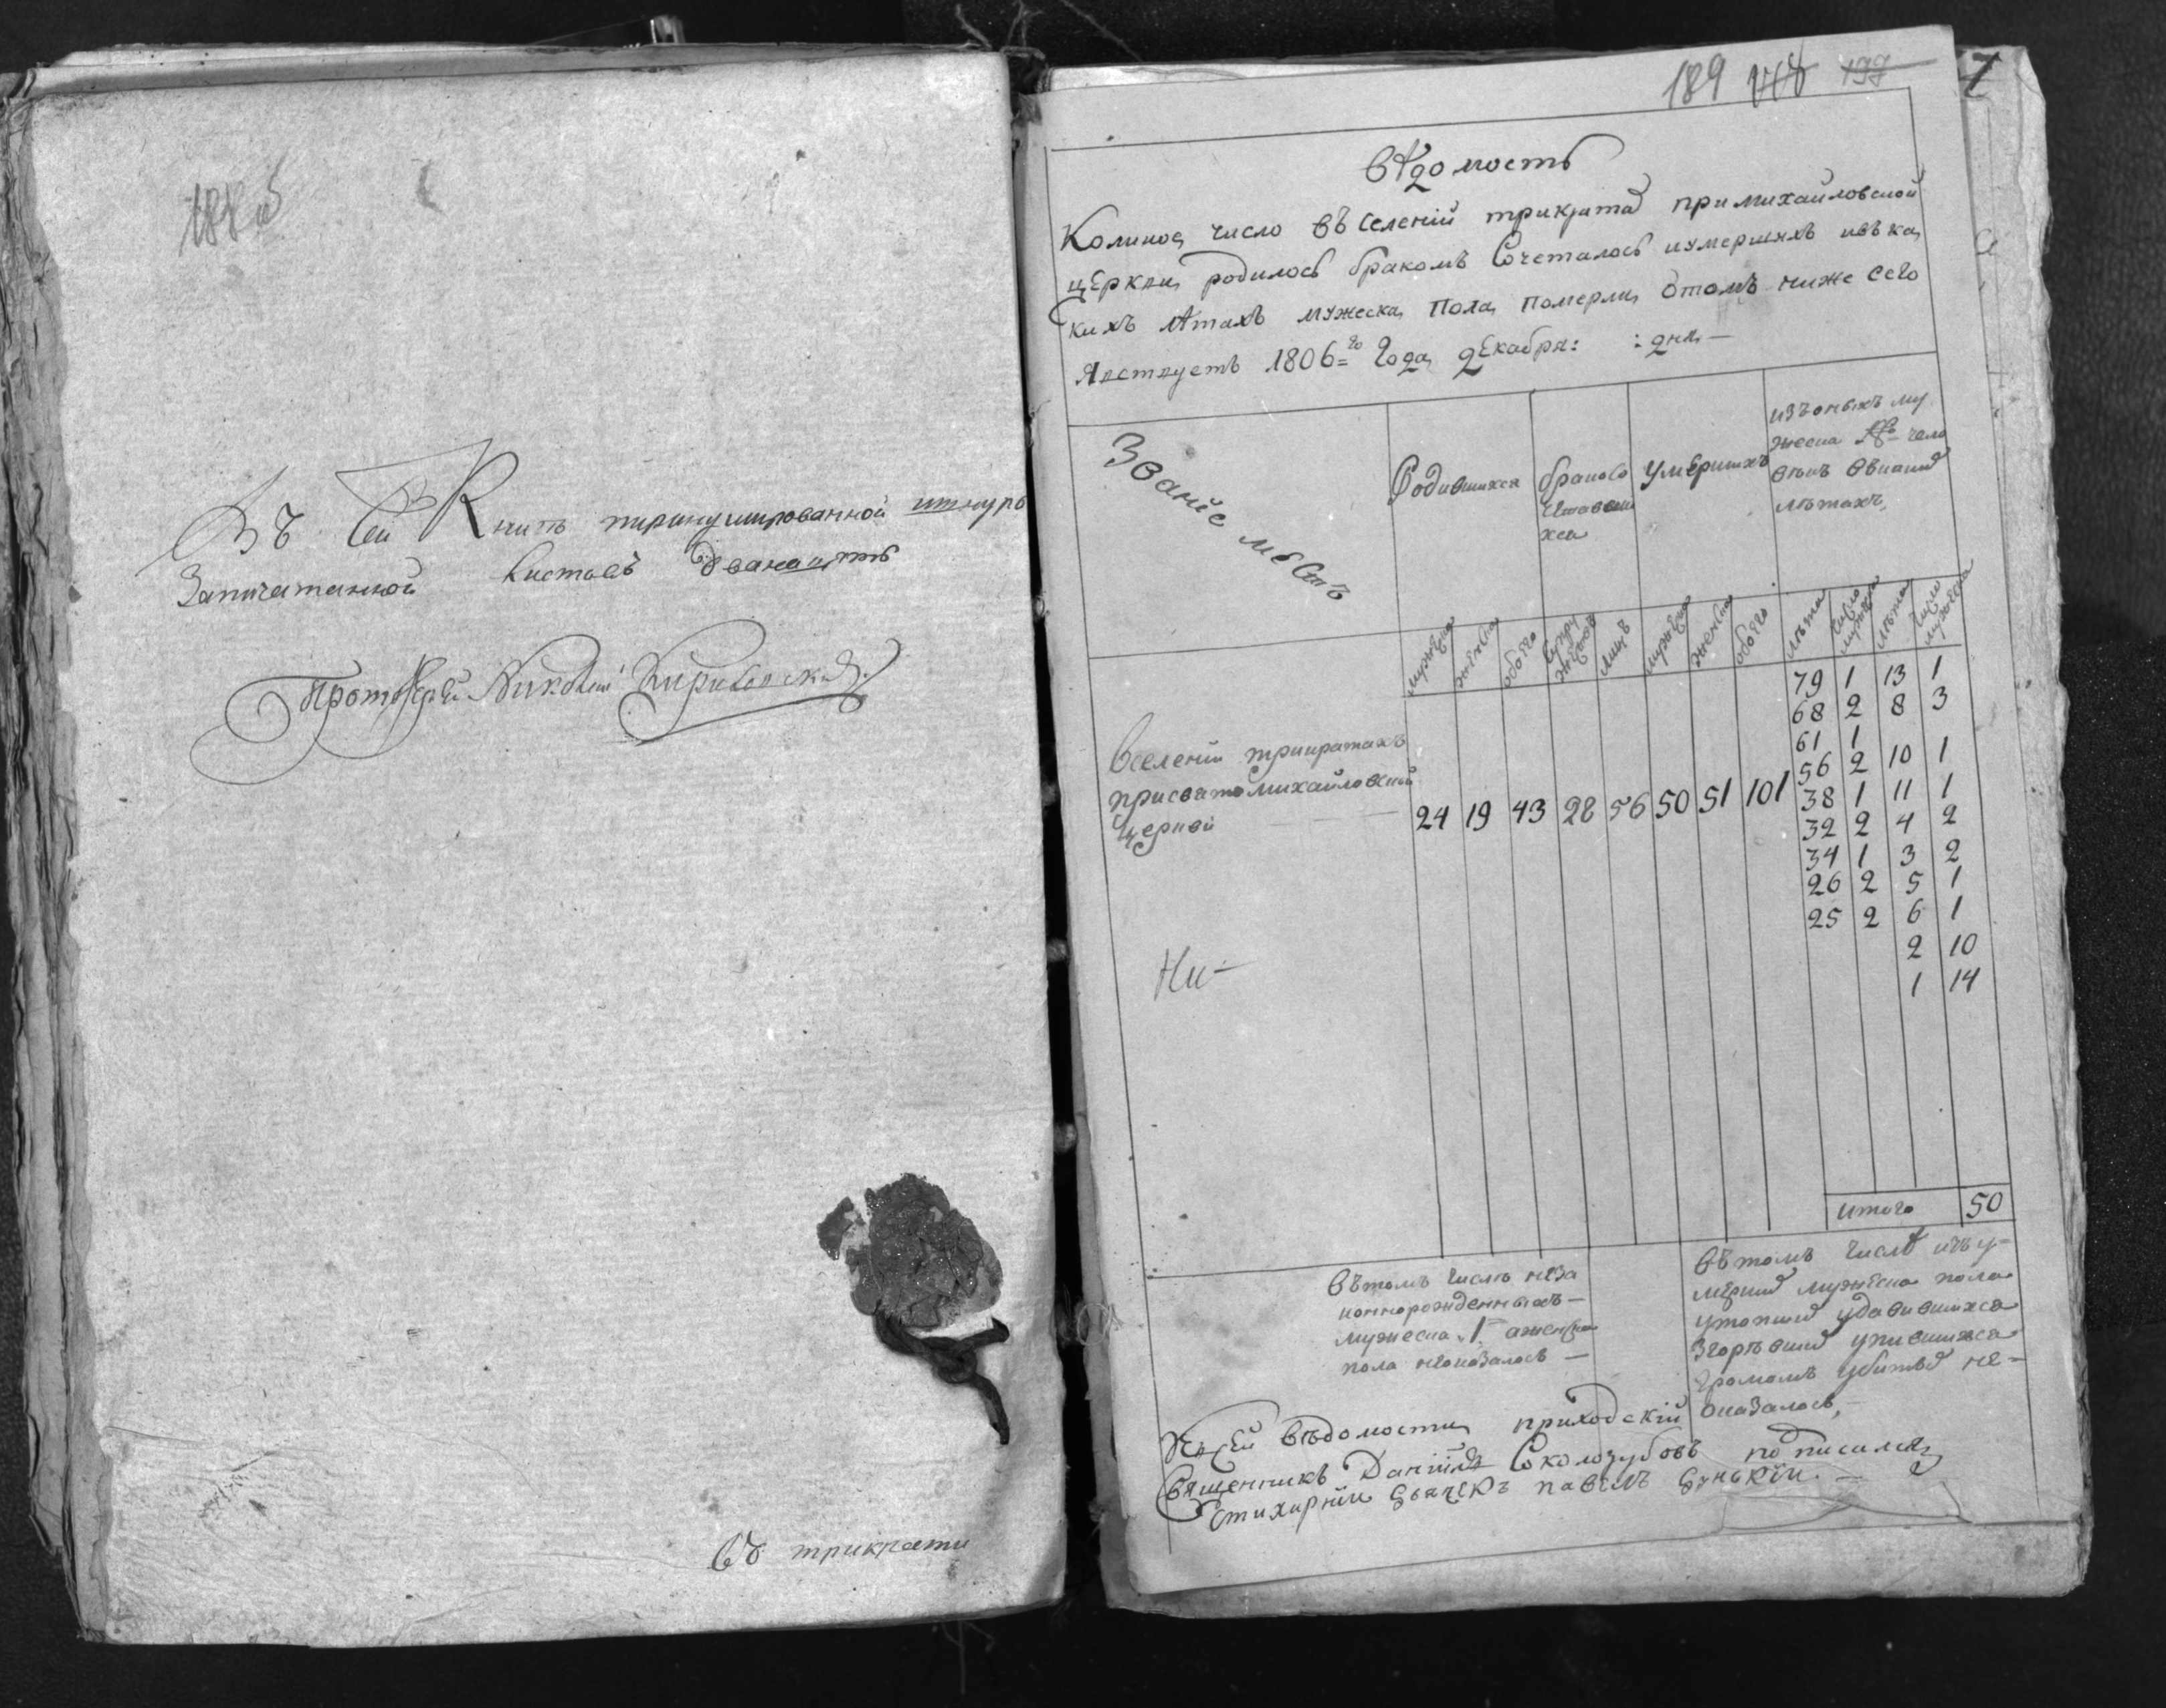 188 об
Въ сей Книгѣ пирнумированной шнуро
Запичатанной Листовъ дванацать
Протоіерей Николай Кириевскій
Съ трикрати
189
199
7
Вѣдомость
Коликое число въ селеніи трикратах при михаиловской
церкви родилось бракомъ Сочеталось иумершихъ ивъка
кихъ лѣтахъ мужеска пола померли, отомъ ниже сего
явствуетъ 1806=го Года декабря: : дня —
Званіе мѣстъ
Родившихся
бракосо
четавши
хся
Умершихъ
изъоныхъ му
жеска чело
вѣкъ вкаких
лѣтахъ,
мужеска
женска
обоего
супру
жествъ
лицъ
мужеска
женска
обоего
лѣта
число
мужеска
лѣта
число
мужеска
Вселеніи трикратахъ
присвятомихайловской
церкви
24 19 43 28 56 50 51 101
79 1 13 1
68 2 8 3
61 1
56 2 10 1
38 1 11 1
32 2 4 2
34 1 3 2
26 2 5 1
25 2 6 1
2 10
1 14
Ни-
итого 50
вътомъ числѣ неза
коннорожденныхъ —
мужеска 1 аженска
пола неоказалось —
вътомъ числѣ изъу-
мерших мужеска пола
утопших удавившихся
згорѣвших упившихся
громомъ убитых не-
оказалось,
Ксей вѣдомости приходскій
Священникъ Даніилъ Соколозубовъ подписался
Стихарніи дьячекъ павелъ дунскіи. —